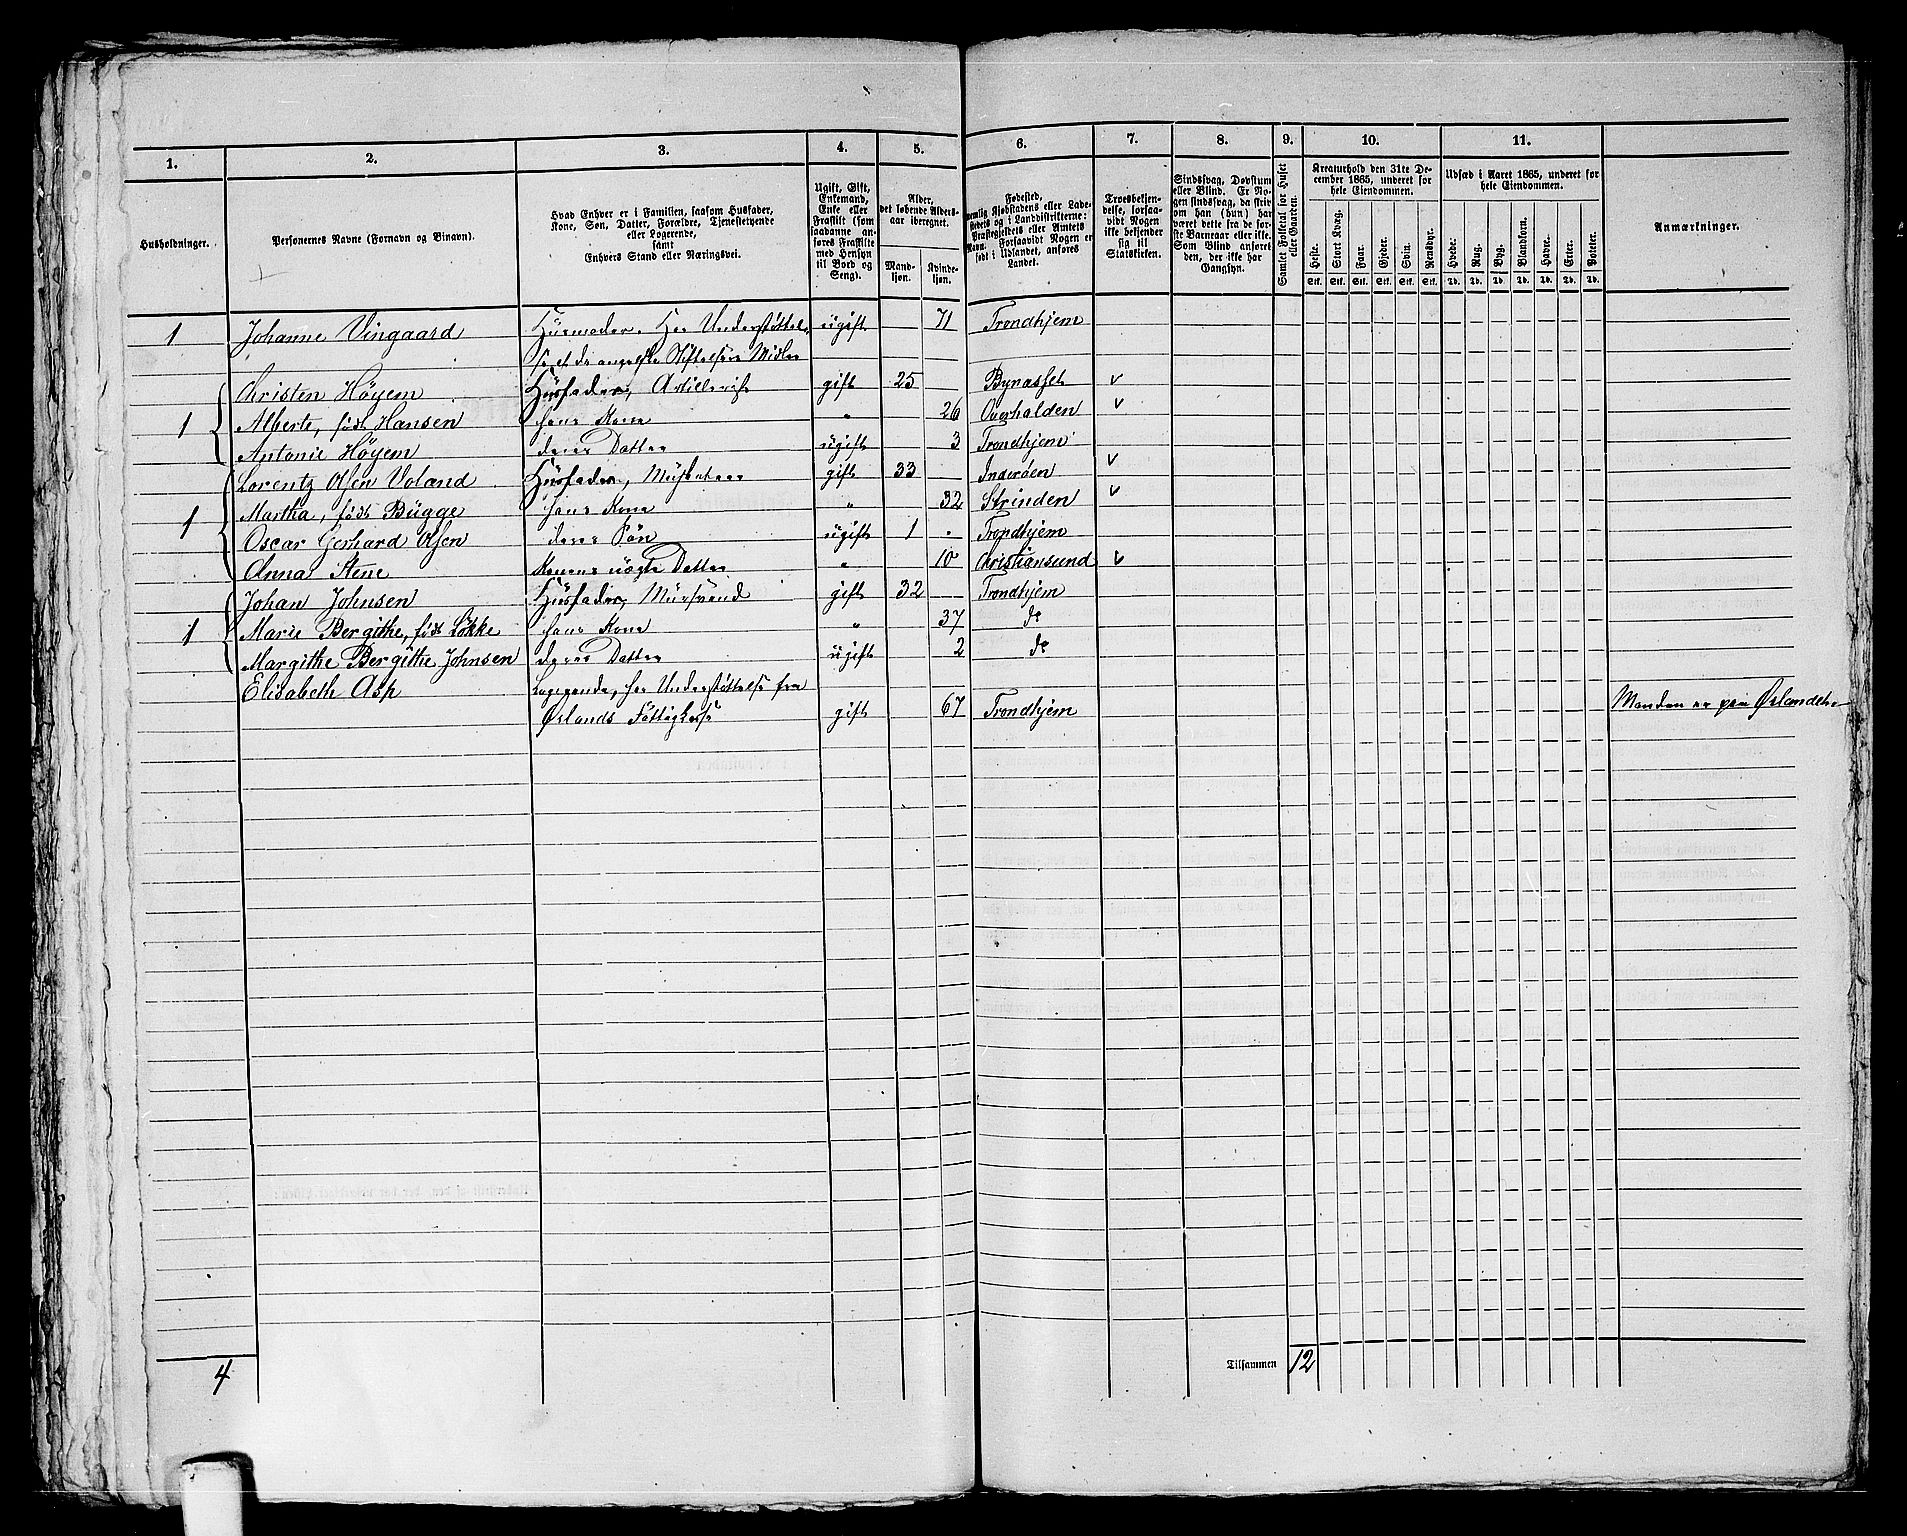 1. 2. 3. 4. 5. 6. 7. 8. 9. 10. 11.
Husholdninger.
Personernes Navne (Fornavn og Binavn).
Hvad Enhver er i Familien, saasom Husfader,
Kone, Søn, Datter, Forældre, Tjenestetyende
eller Logerende,
samt
Enhvers Stand eller Næringsvei.
Ugift, Gift,
Enkemand,
Enke eller
Fraskilt (som
saadanne an-
føres Fraskilte
med Hensyn
til Bord og
Seng).
Alder,
det løbende Alders-
aar iberegnet.
Mand-
kjøn.
Kvinde-
kjøn.
Fødested,
nemlig Kjøbstadens eller Lade-
stedets og i Landdistrikterne:
Præstegjeldets eller Amtets
Navn. Forsaavidt Nogen er
født i Udlandet, anføres
Landet.
Troesbekjen-
delse, forsaa-
vidt Nogen
ikke bekjender
sig til
Statskirken.
Sindssvag, Døvstum
eller Blind. Er No-
gen sindssvag, da skriv
om han (hun) har
været dette fra de før-
ste Barneaar eller ikke.
Som Blind anføres
den, der ikke har
Gangsyn.
Samlet Folketal for Huset
eller Gaarden.
Kreaturhold den 31te De-
cember 1865, underet for
hele Eiendommen.
Heste. Stort Kvæg. Faar. Gjeder. Svin. Rensdyr.
Stk. Stk. Stk. Stk. Stk. Stk.
Udsæd i Aaret 1865, underet for
hele Eiendommen.
Hvede. Rug. Byg. Blandkorn. Havre. Erter. Poteter.
Td. Td. Td. Td. Td. Td. Td.
Anmærkninger.
1 Johanne Vingaard Huusmoder. Har Understøttel- ugift 71 Trondhjem
se af de angelske Stiftelsers Midler
Christen Høyem Huusfader, Artillerist gift 25 Bynæsset v
1 Alberte, født Hansen hans Kone " 26 Overhalden v
Antonie Høyem deres Datter ugift 3 Trondhjem
Lorentz Olsen Voland Huusfader, gift 33 Inderøen v
1 Martha, født Bügge hans Kone " 32 Strinden v
Oscar Gerhard Olsen deres Søn ugift 1 Trondhjem
Anna Stene Konens uægte Datter " 10 Christiansund v
Johan Johnsen Huusfader, Muursvend gift 32 Trondhjem
1 Marie Bergithe, født Løkke hans Kone " 37 do
Margithe Bergithe Johnsen deres Datter ugift 2 do
Elisabeth Asp Logerende, har Understøttelse fra
Ørlands Fattigkasse gift 67 Trondhjem Manden er paa Ørlandet.
4 Tilsammen 12